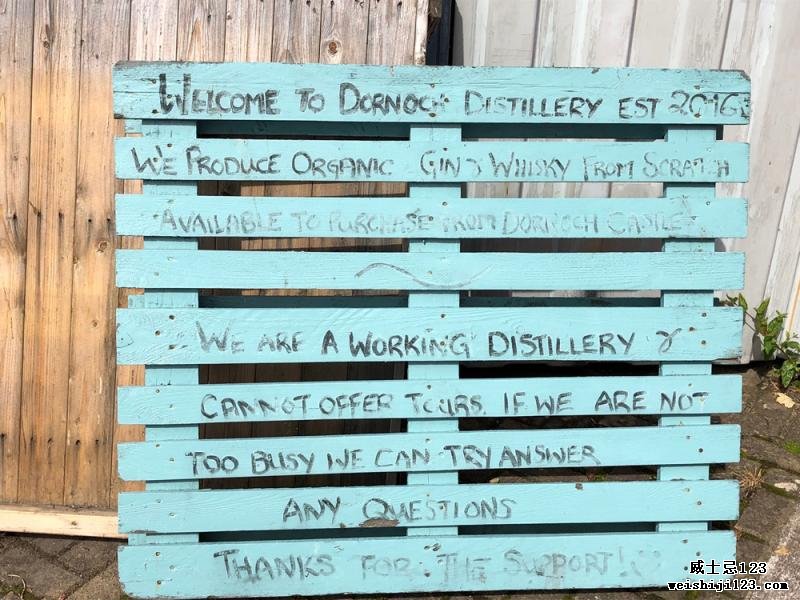 WELCOME TO DORNOCH DISTILLERY EST 2016
WE PRODUCE ORGANIC GIN & WHISKY FROM SCRATCH
AVAILABLE TO PURCHASE FROM DORNOCH CASTLE
WE ARE A WORKING DISTILLERY &
CANNOT OFFER TOURS. IF WE ARE NOT
TOO BUSY WE CAN TRY ANSWER
ANY QUESTIONS
THANKS FOR THE SUPPORT!
威士忌123
weishiji123.com